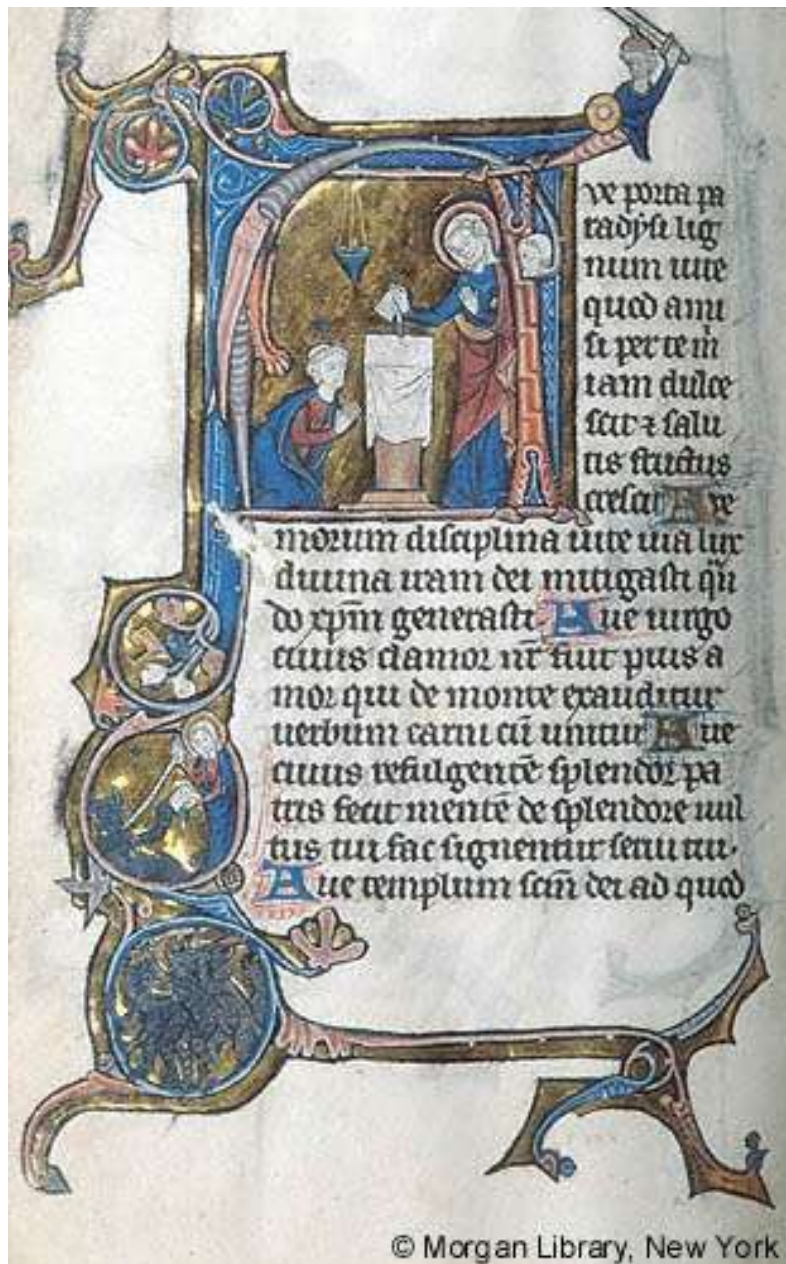 ve porta pa
radysi lig
num uite
quod ami
si per cem̄
iam dulce
scit ⁊ salu
tis fructus
crescit Ave
morum disciplina uite uia lux
diuina iram dei mitigasti qn̄
do xp̄m generasti Aue uirgo
cuius clamor nr̄ fuit pius a
mor qui de monte exauditur
uerbum carni cū unitur Aue
cuius refulgentē splendor pa
tris fecit mentē de splendore uul
tus tui fac signentur serui tui.
Aue templum scm̄ dei ad quod
© Morgan Library, New York